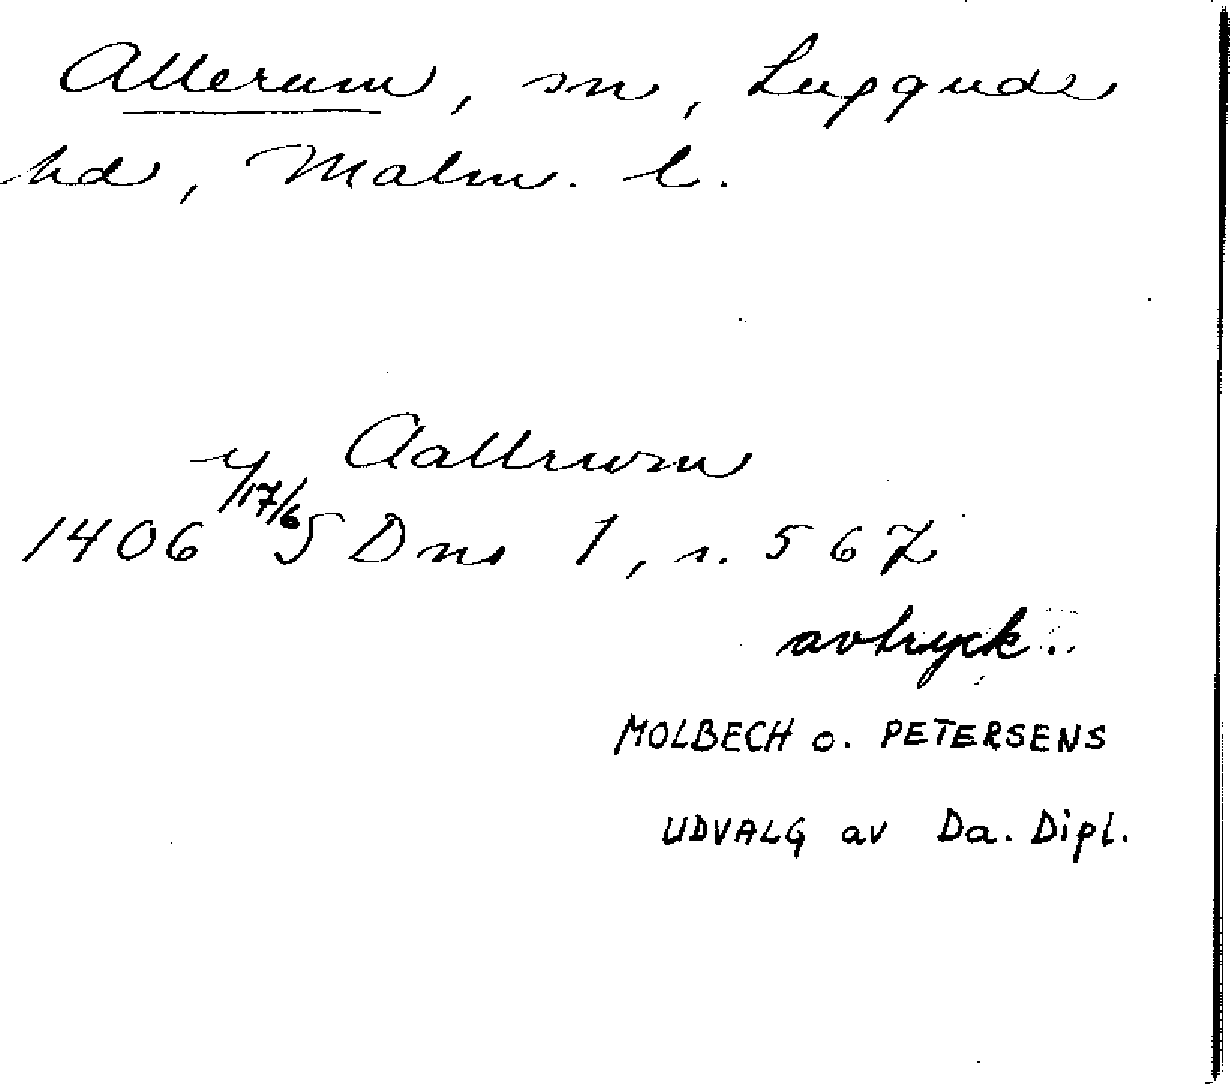 Allerum, sn, Luggude
hd, Malm. l.
y Aallrwm
1406 17/6 SDns 1, s. 567
avtryck.
MOLBECH o. PETERSENS
UDVALG av Da. Dipl.